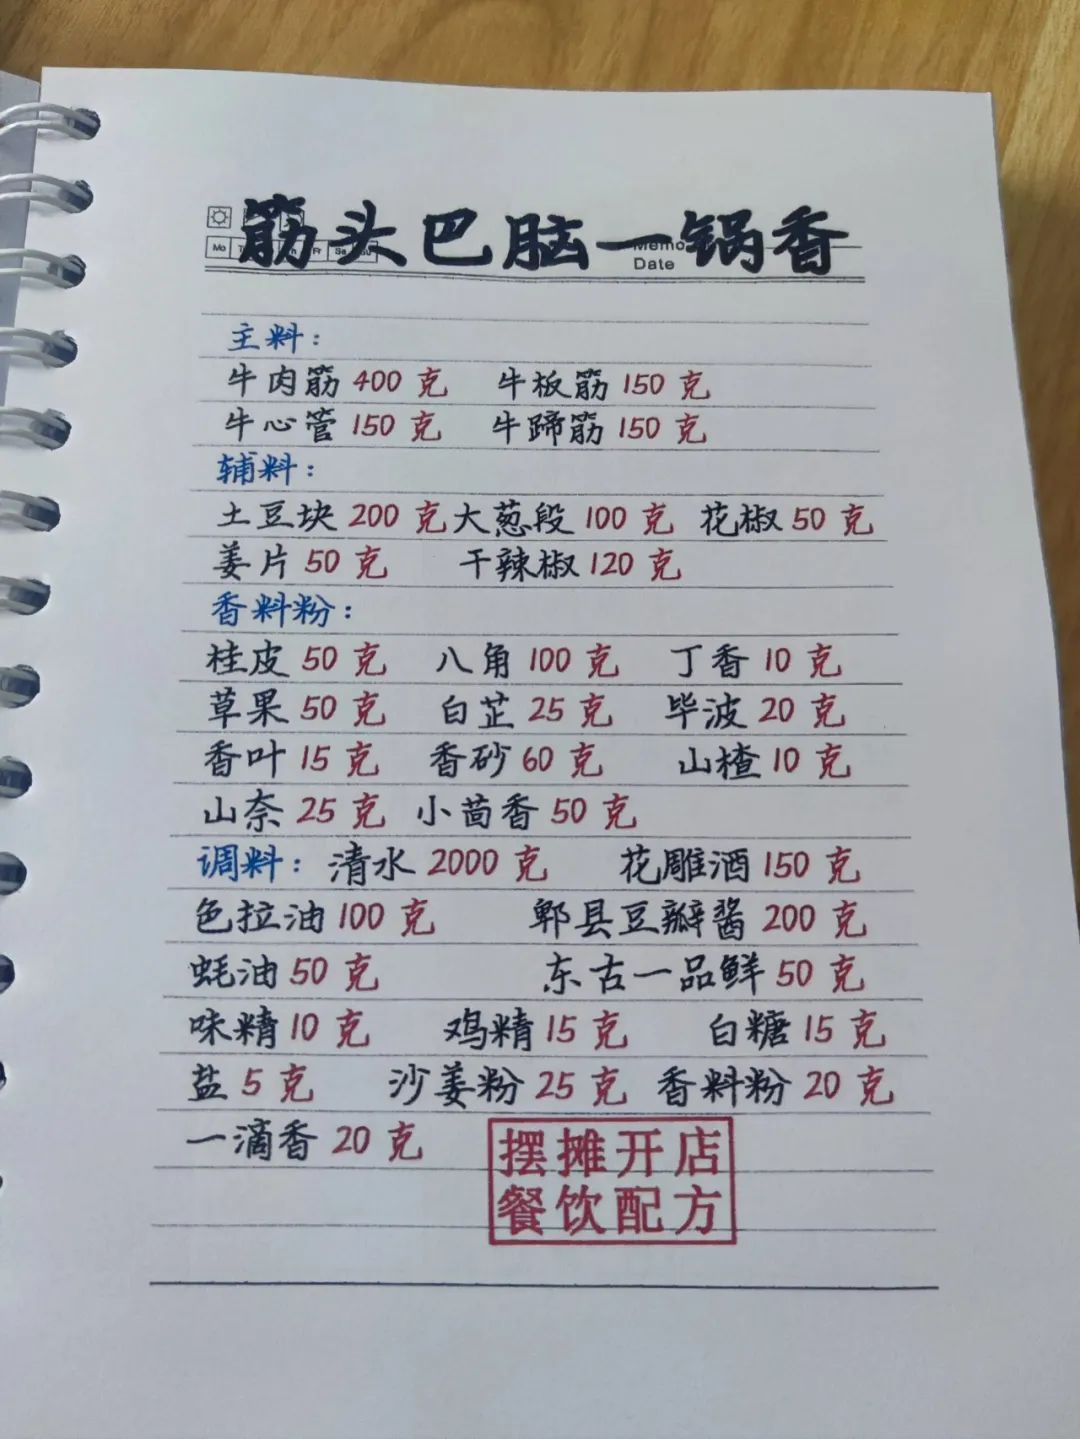 筋头巴脑一锅香
Mo
Fr
Sa
Memo
Date
主料：
牛肉筋 400 克 牛板筋 150 克
牛心管 150 克 牛蹄筋 150 克
辅料：
土豆块 200 克 大葱段 100 克 花椒 50 克
姜片 50 克 干辣椒 120 克
香料粉：
桂皮 50 克 八角 100 克 丁香 10 克
草果 50 克 白芷 25 克 毕波 20 克
香叶 15 克 香砂 60 克 山楂 10 克
山奈 25 克 小茴香 50 克
调料：清水 2000 克 花雕酒 150 克
色拉油 100 克 郫县豆瓣酱 200 克
蚝油 50 克 东古一品鲜 50 克
味精 10 克 鸡精 15 克 白糖 15 克
盐 5 克 沙姜粉 25 克 香料粉 20 克
一滴香 20 克
摆摊开店
餐饮配方